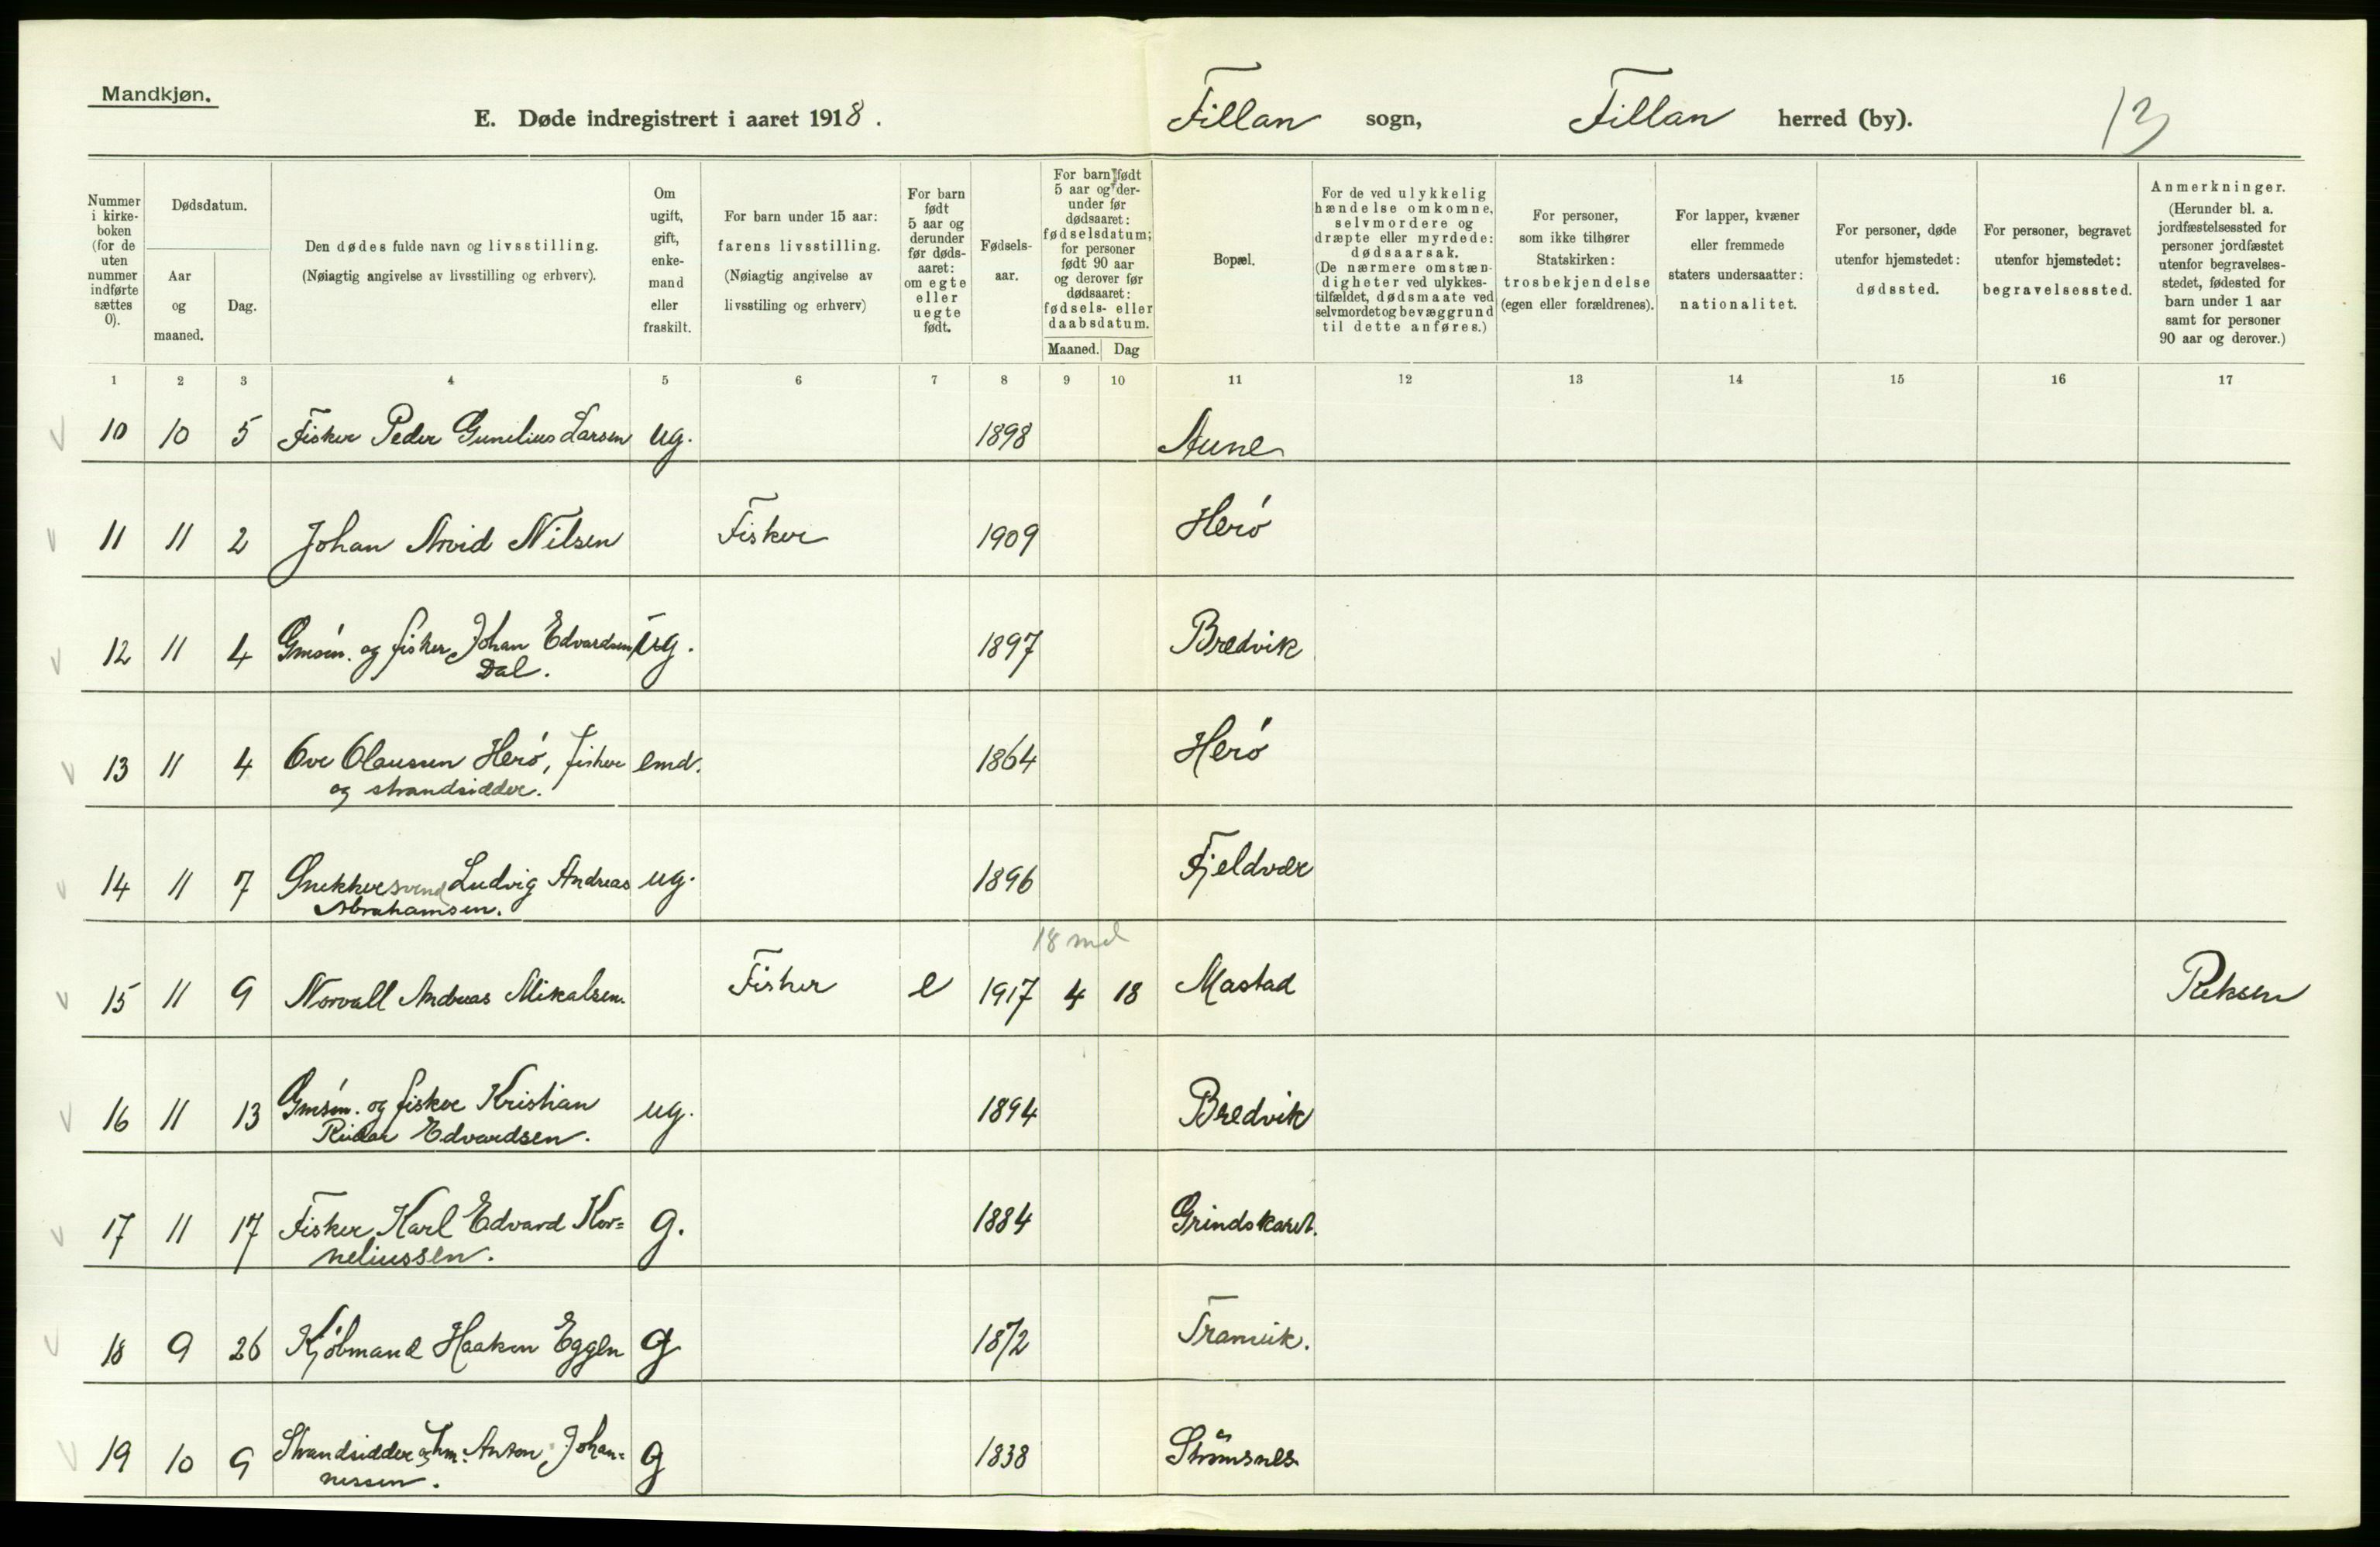 Mandkjøn.
E. Døde indregistrert i aaret 1918. Fillan sogn, Fillan herred (by). 13
Nummer i kirke- boken (for de uten nummer indførte sættes 0).
Dødsdatum.
Aar og maaned.
Dag.
Den dødes fulde navn og livsstilling.
(Nøiagtig angivelse av livsstilling og erhverv).
Om ugift, gift, enke- mand eller fraskilt.
For barn under 15 aar:
farens livsstilling.
(Nøiagtig angivelse av
livsstiling og erhverv)
For barn født 5 aar og derunder før døds- aaret: om egte eller uegte født.
Fødsels- aar.
For barn født 5 aar og der- under før dødsaaret: fødselsdatum; for personer født 90 aar og derover før dødsaaret: fødsels- eller daabsdatum.
Maaned. Dag
Bopæl.
For de ved ulykkelig hændelse omkomne, selvmordere og dræpte eller myrdede: dødsaarsak. (De nærmere omstæn- digheter ved ulykkes- tilfældet, dødsmaate ved selvmordet og bevæggrund til dette anføres.)
For personer, som ikke tilhører Statskirken: trosbekjendelse (egen eller forældrenes).
For lapper, kvæner eller fremmede staters undersaatter: nationalitet.
For personer, døde utenfor hjemstedet: dødssted.
For personer, begravet utenfor hjemstedet: begravelsessted.
Anmerkninger. (Herunder bl. a. jordfæstelsessted for personer jordfæstet utenfor begravelses- stedet, fødested for barn under 1 aar samt for personer 90 aar og derover.)
1 2 3 4 5 6 7 8 9 10 11 12 13 14 15 16 17
10 10 5 Fisker Peder Gunelius Larsen ug. 1898 Aune
11 11 2 Johan Arvid Nilsen Fisker 1909 Herö
12 11 4 Gmsön. og fisker Johan Edvardsen ug. 1897 Bredvik
Dal.
13 11 4 Ove Olaussen Herö, fisker emd. 1864 Herö
og strandsidder.
14 11 7 Snekkersvend Ludvig Andreas ug. 1896 Fjeldvær
Abrahamsen.
18 md
15 11 9 Norvall Andreas Mikalsen. Fisker e 1917 4 18 Mastad
16 11 13 Gmsön. og fisker Kristian ug. 1894 Bredvik
Edvardsen.
17 11 17 Fisker Karl Edvard Kor= g. 1884 Grindskaret.
neliussen.
18 9 26 Kjöbmand Haakon Eggen g 1872 Tranvik.
19 10 9 Strandsidder og Anton Johan= g 1838 Strömsnes
nessen.